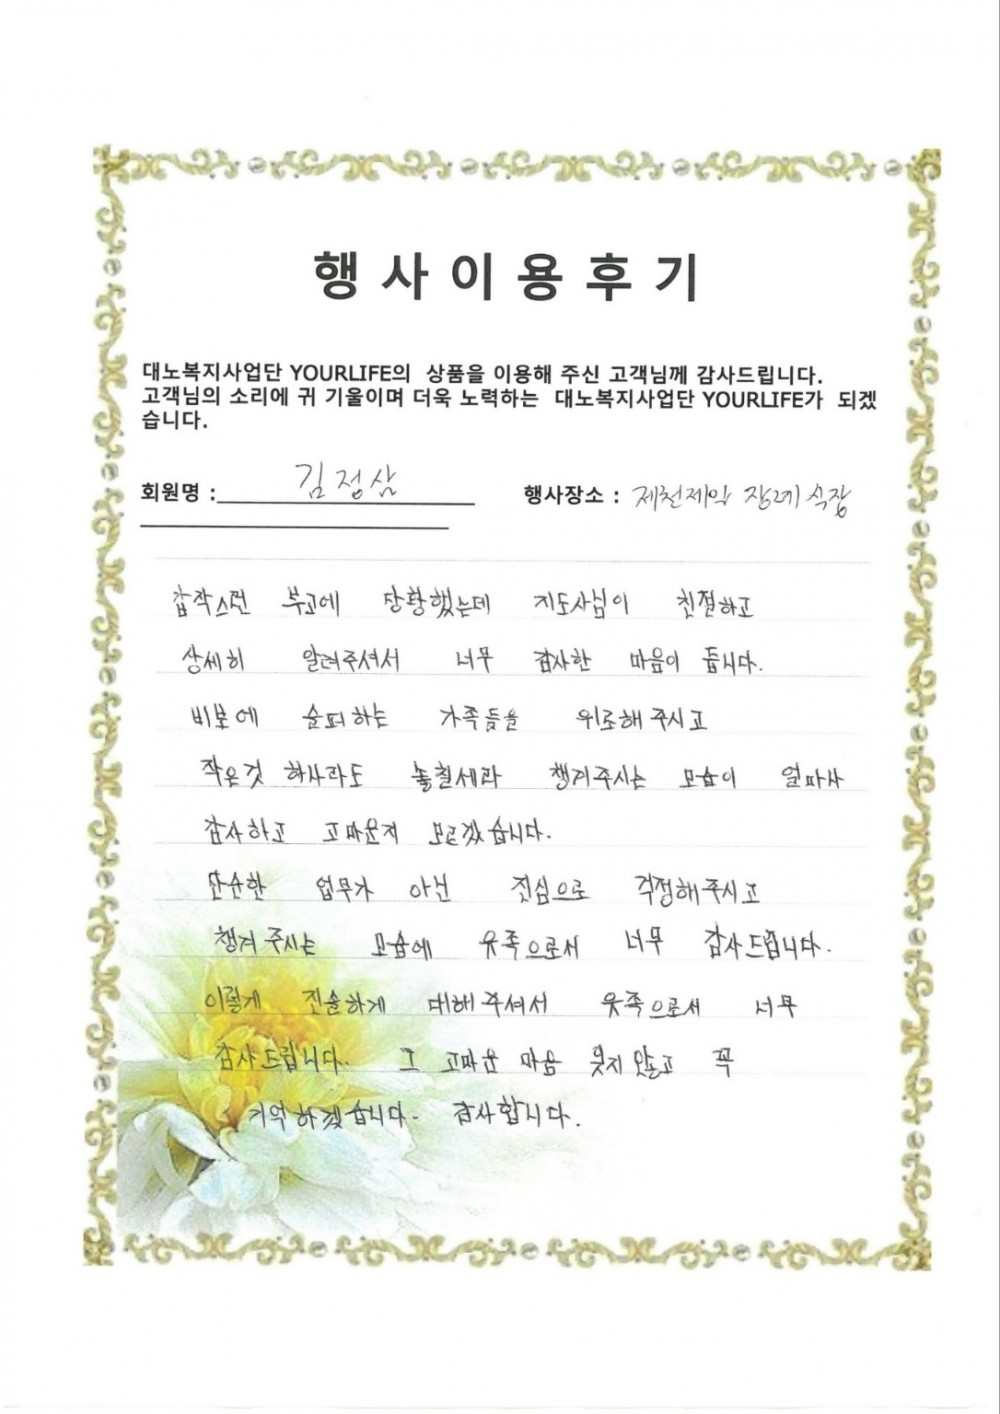 행사이용후기
대노복지사업단 YOURLIFE의 상품을 이용해 주신 고객님께 감사드립니다.
고객님의 소리에 귀 기울이며 더욱 노력하는 대노복지사업단 YOURLIFE가 되겠
습니다.
회원명 : 김정삼 행사장소 : 제천제일 장례식장
갑작스런 부고에 당황했는데 지도사님이 친절하고
상세히 알려주셔서 너무 감사한 마음이 듭니다.
비보에 슬퍼하는 가족들을 위로해 주시고
작은것 하나라도 놓칠세라 챙겨주시는 모습이 얼마나
감사하고 고마운지 모르겠습니다.
단순한 업무가 아닌 진심으로 걱정해주시고
챙겨 주시는 모습에 유족으로서 너무 감사드립니다.
이렇게 진솔하게 대해 주셔서 유족으로서 너무
감사드립니다. 그 고마운 마음 잊지 않고 꼭
기억하겠습니다. 감사합니다.